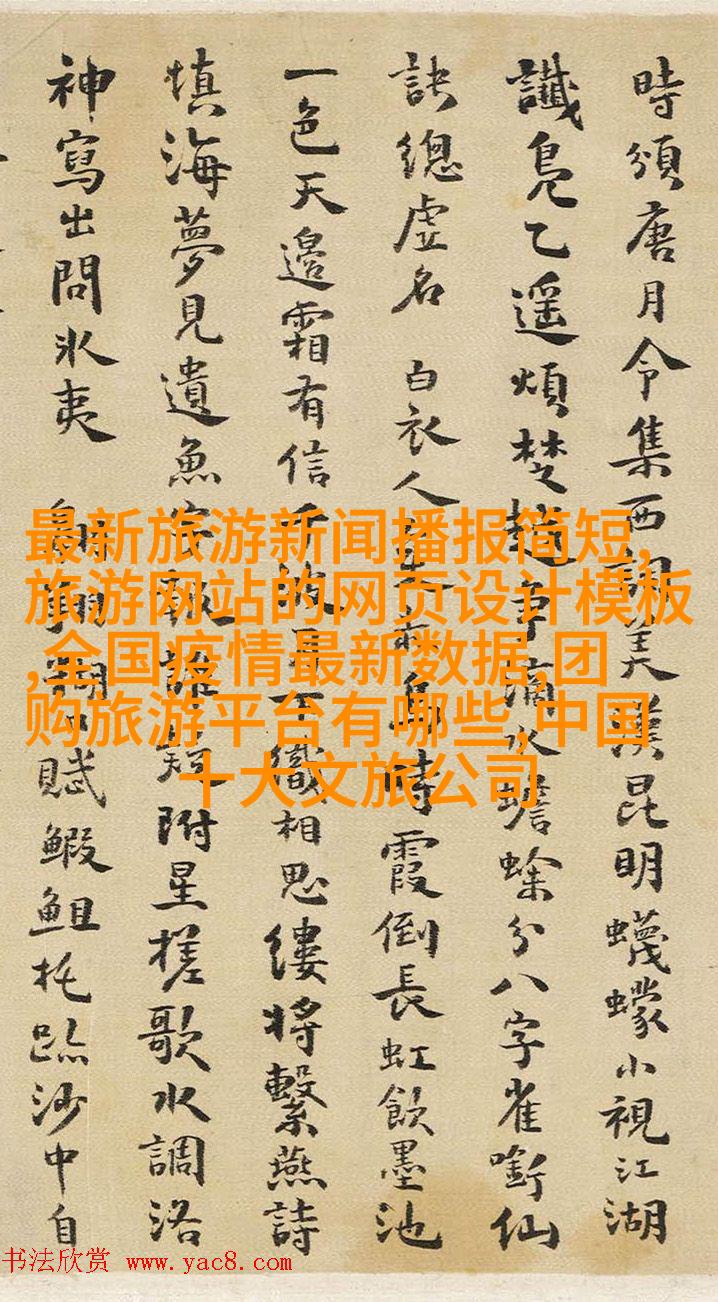 時頒唐月令集西詞美漢昆明蠛蠓小視江湖
讖鳧乙遥煩楚趙爭滴水蟾蜍分八字雀銜仙
訣總虚名 白衣人 時霞倒長虹飲墨池
一色天邉霜有信 織相思縷將繫燕詩
慎海夢見遺魚 短附星槎歌水調洛
神寫出問氷夷 賦鰕鉏 沙中自
最新旅游新闻播报简短,
旅游网站的网页设计模板
,全国疫情最新数据,团
购旅游平台有哪些,中国
十大文旅公司
书法欣赏 www.yac8.com